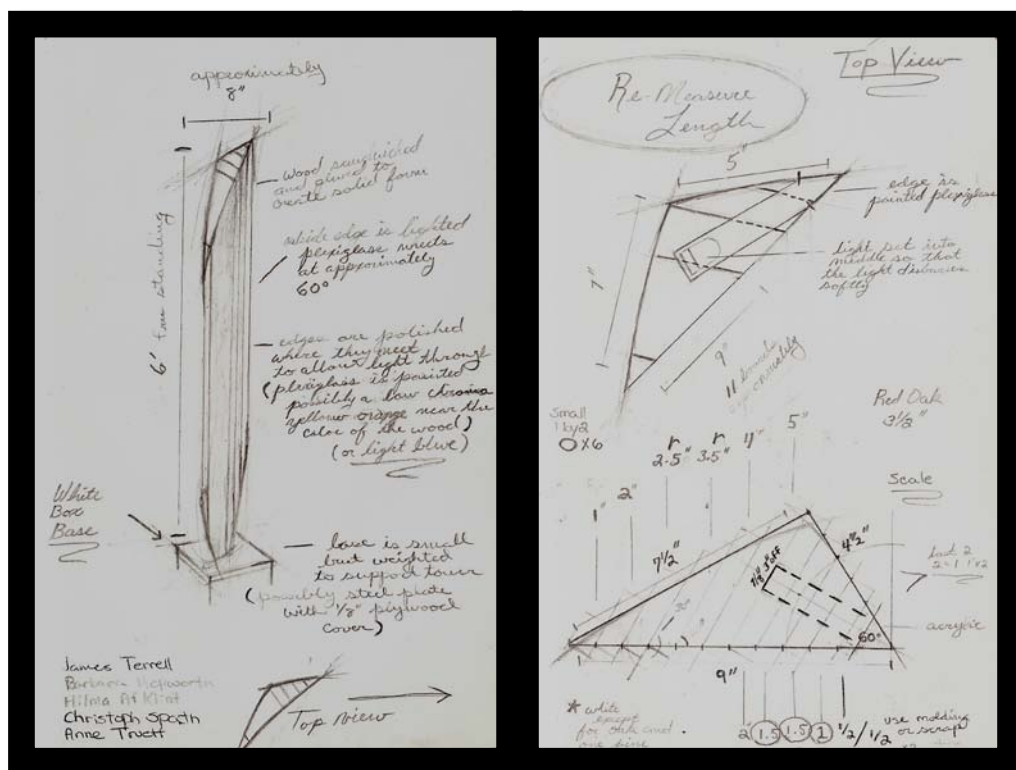 approximately
8"
wood sandwiched
and glued to
create solid form
6' free standing
edge is lighted
plexiglass meets
at approximately
60°
edges are polished
where they meet
to allow light through
(plexiglass is painted
possibly a low chroma
yellow orange near the
color of the wood)
(or light blue)
White
Box
Base
base is small
but weighted
to support tower
(possibly steel plate
with 1/8" plywood
cover)
James Terrell
Barbara Hepworth
Hilma Af Klint
Christoph Spath
Anne Truett
Top view
Top View
Re-Measure
Length
5"
edge is
painted plexiglass
light set into
middle so that
the light disburses
softly
7"
9"
Small
1 by 2
0x6
Red Oak
3 1/2"
1"
2"
r
2.5"
r
3.5"
4"
5"
Scale
7 1/2"
4 1/2"
60°
acrylic
9"
* white
except
for oak and
one pine
2
1.5
1.5
1
1/2 / 1/2
use molding
or scrap